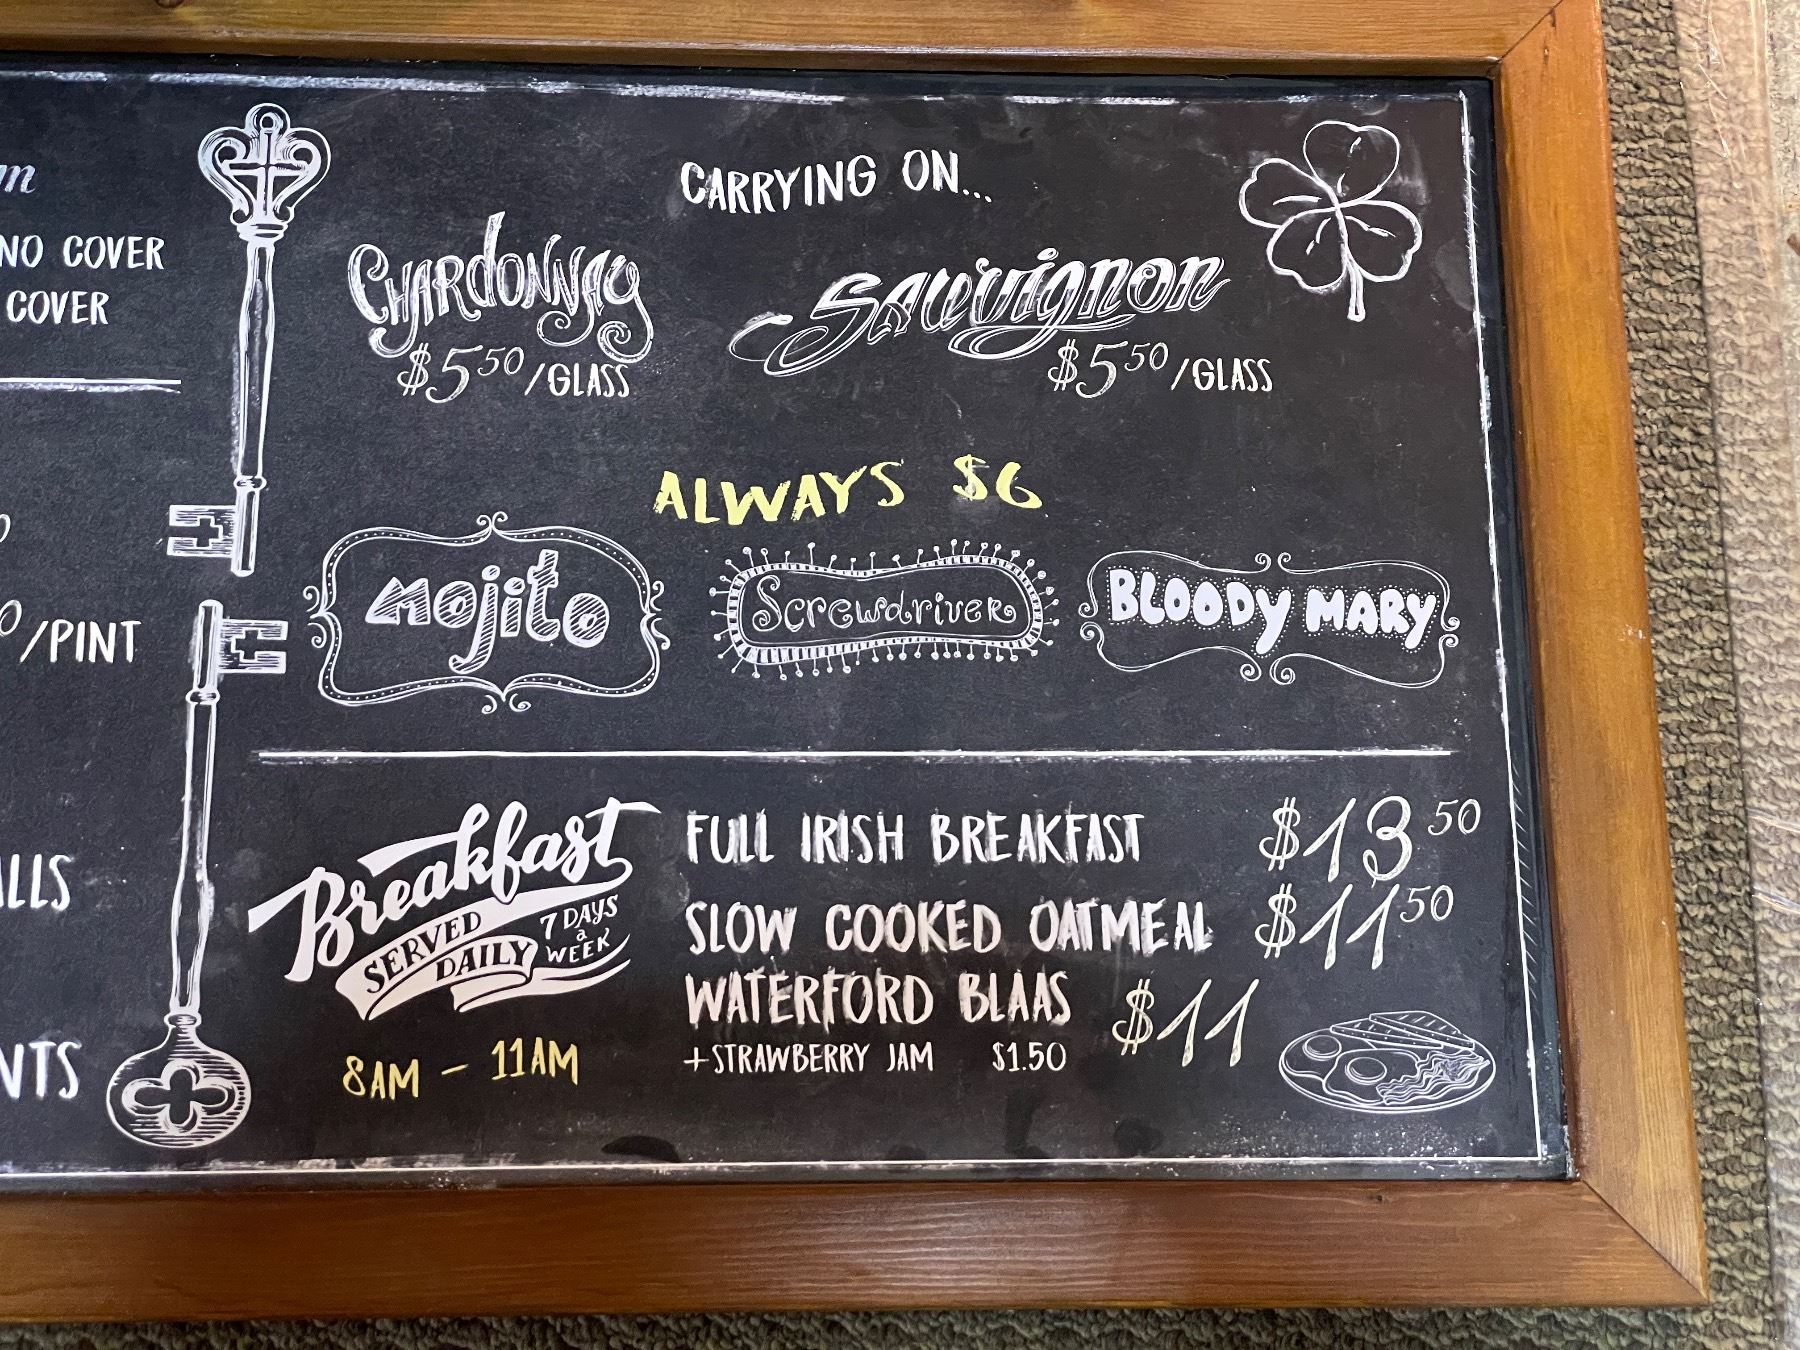 NO COVER
COVER
/PINT
CARRYING ON...
CHARDONNAY
$5.50/GLASS
SAUVIGNON
$5.50/GLASS
ALWAYS $6
MOJITO
SCREWDRIVER
BLOODY MARY
Breakfast
SERVED DAILY
7 DAYS a WEEK
8AM - 11AM
FULL IRISH BREAKFAST $13.50
SLOW COOKED OATMEAL $11.50
WATERFORD BLAAS $11
+STRAWBERRY JAM $1.50